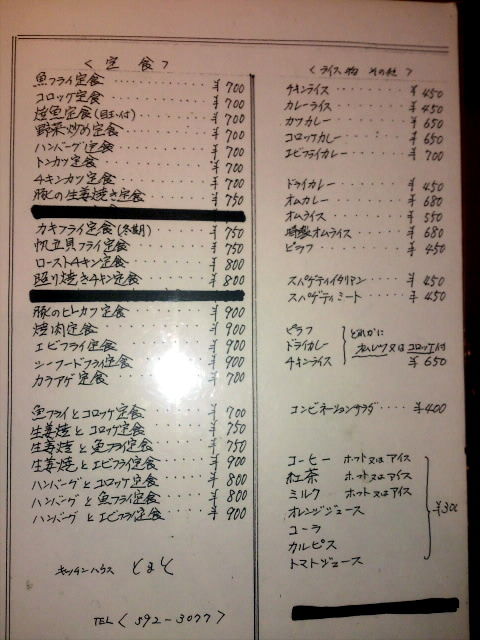 〈定食〉
魚フライ定食 ¥700
コロッケ定食 ¥700
焼魚定食(目玉付) ¥700
野菜炒め定食 ¥700
ハンバーグ定食 ¥700
トンカツ定食 ¥700
チキンカツ定食 ¥700
豚の生姜焼き定食 ¥750
カキフライ定食(冬期) ¥750
帆立貝フライ定食 ¥750
ローストチキン定食 ¥800
照り焼きチキン定食 ¥800
豚のヒレカツ定食 ¥900
焼肉定食 ¥900
エビフライ定食 ¥900
シーフードフライ定食 ¥900
カラアゲ定食 ¥700
魚フライとコロッケ定食 ¥700
生姜焼とコロッケ定食 ¥750
生姜焼と魚フライ定食 ¥750
生姜焼とエビフライ定食 ¥900
ハンバーグとコロッケ定食 ¥800
ハンバーグと魚フライ定食 ¥800
ハンバーグとエビフライ定食 ¥900
キッチンハウス とまと
TEL〈592-3077〉
〈ライス物 その他〉
チキンライス ¥450
カレーライス ¥450
カツカレー ¥650
コロッケカレー ¥650
エビフライカレー ¥700
ドライカレー ¥450
オムカレー ¥680
オムライス ¥550
特製オムライス ¥680
ピラフ ¥450
スパゲティイタリアン ¥450
スパゲティミート ¥450
ピラフ
ドライカレー
チキンライス
どれかに
オムレツ又はコロッケ付
¥650
コンビネーションサラダ ¥400
コーヒー ホット又はアイス
紅茶 ホット又はアイス
ミルク ホット又はアイス
オレンジジュース
コーラ
カルピス
トマトジュース
¥300